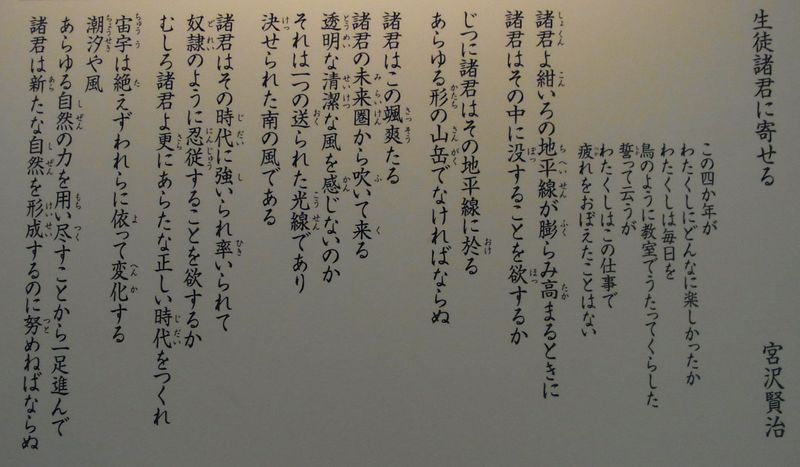 生徒諸君に寄せる
宮沢賢治
この四か年が
わたくしにどんなに楽しかったか
わたくしは毎日を
鳥のように教室でうたってくらした
誓って云うが
わたくしはこの仕事で
疲れをおぼえたことはない
諸君よ紺いろの地平線が膨らみ高まるときに
諸君はその中に没することを欲するか
じつに諸君はその地平線に於る
あらゆる形の山岳でなければならぬ
諸君はこの颯爽たる
諸君の未来圏から吹いて来る
透明な清潔な風を感じないのか
それは一つの送られた光線であり
決せられた南の風である
諸君はその時代に強いられ率いられて
奴隷のように忍従することを欲するか
むしろ諸君よ更にあらたな正しい時代をつくれ
宙宇は絶えずわれらに依って変化する
潮汐や風
あらゆる自然の力を用い尽すことから一足進んで
諸君は新たな自然を形成するのに努めねばならぬ